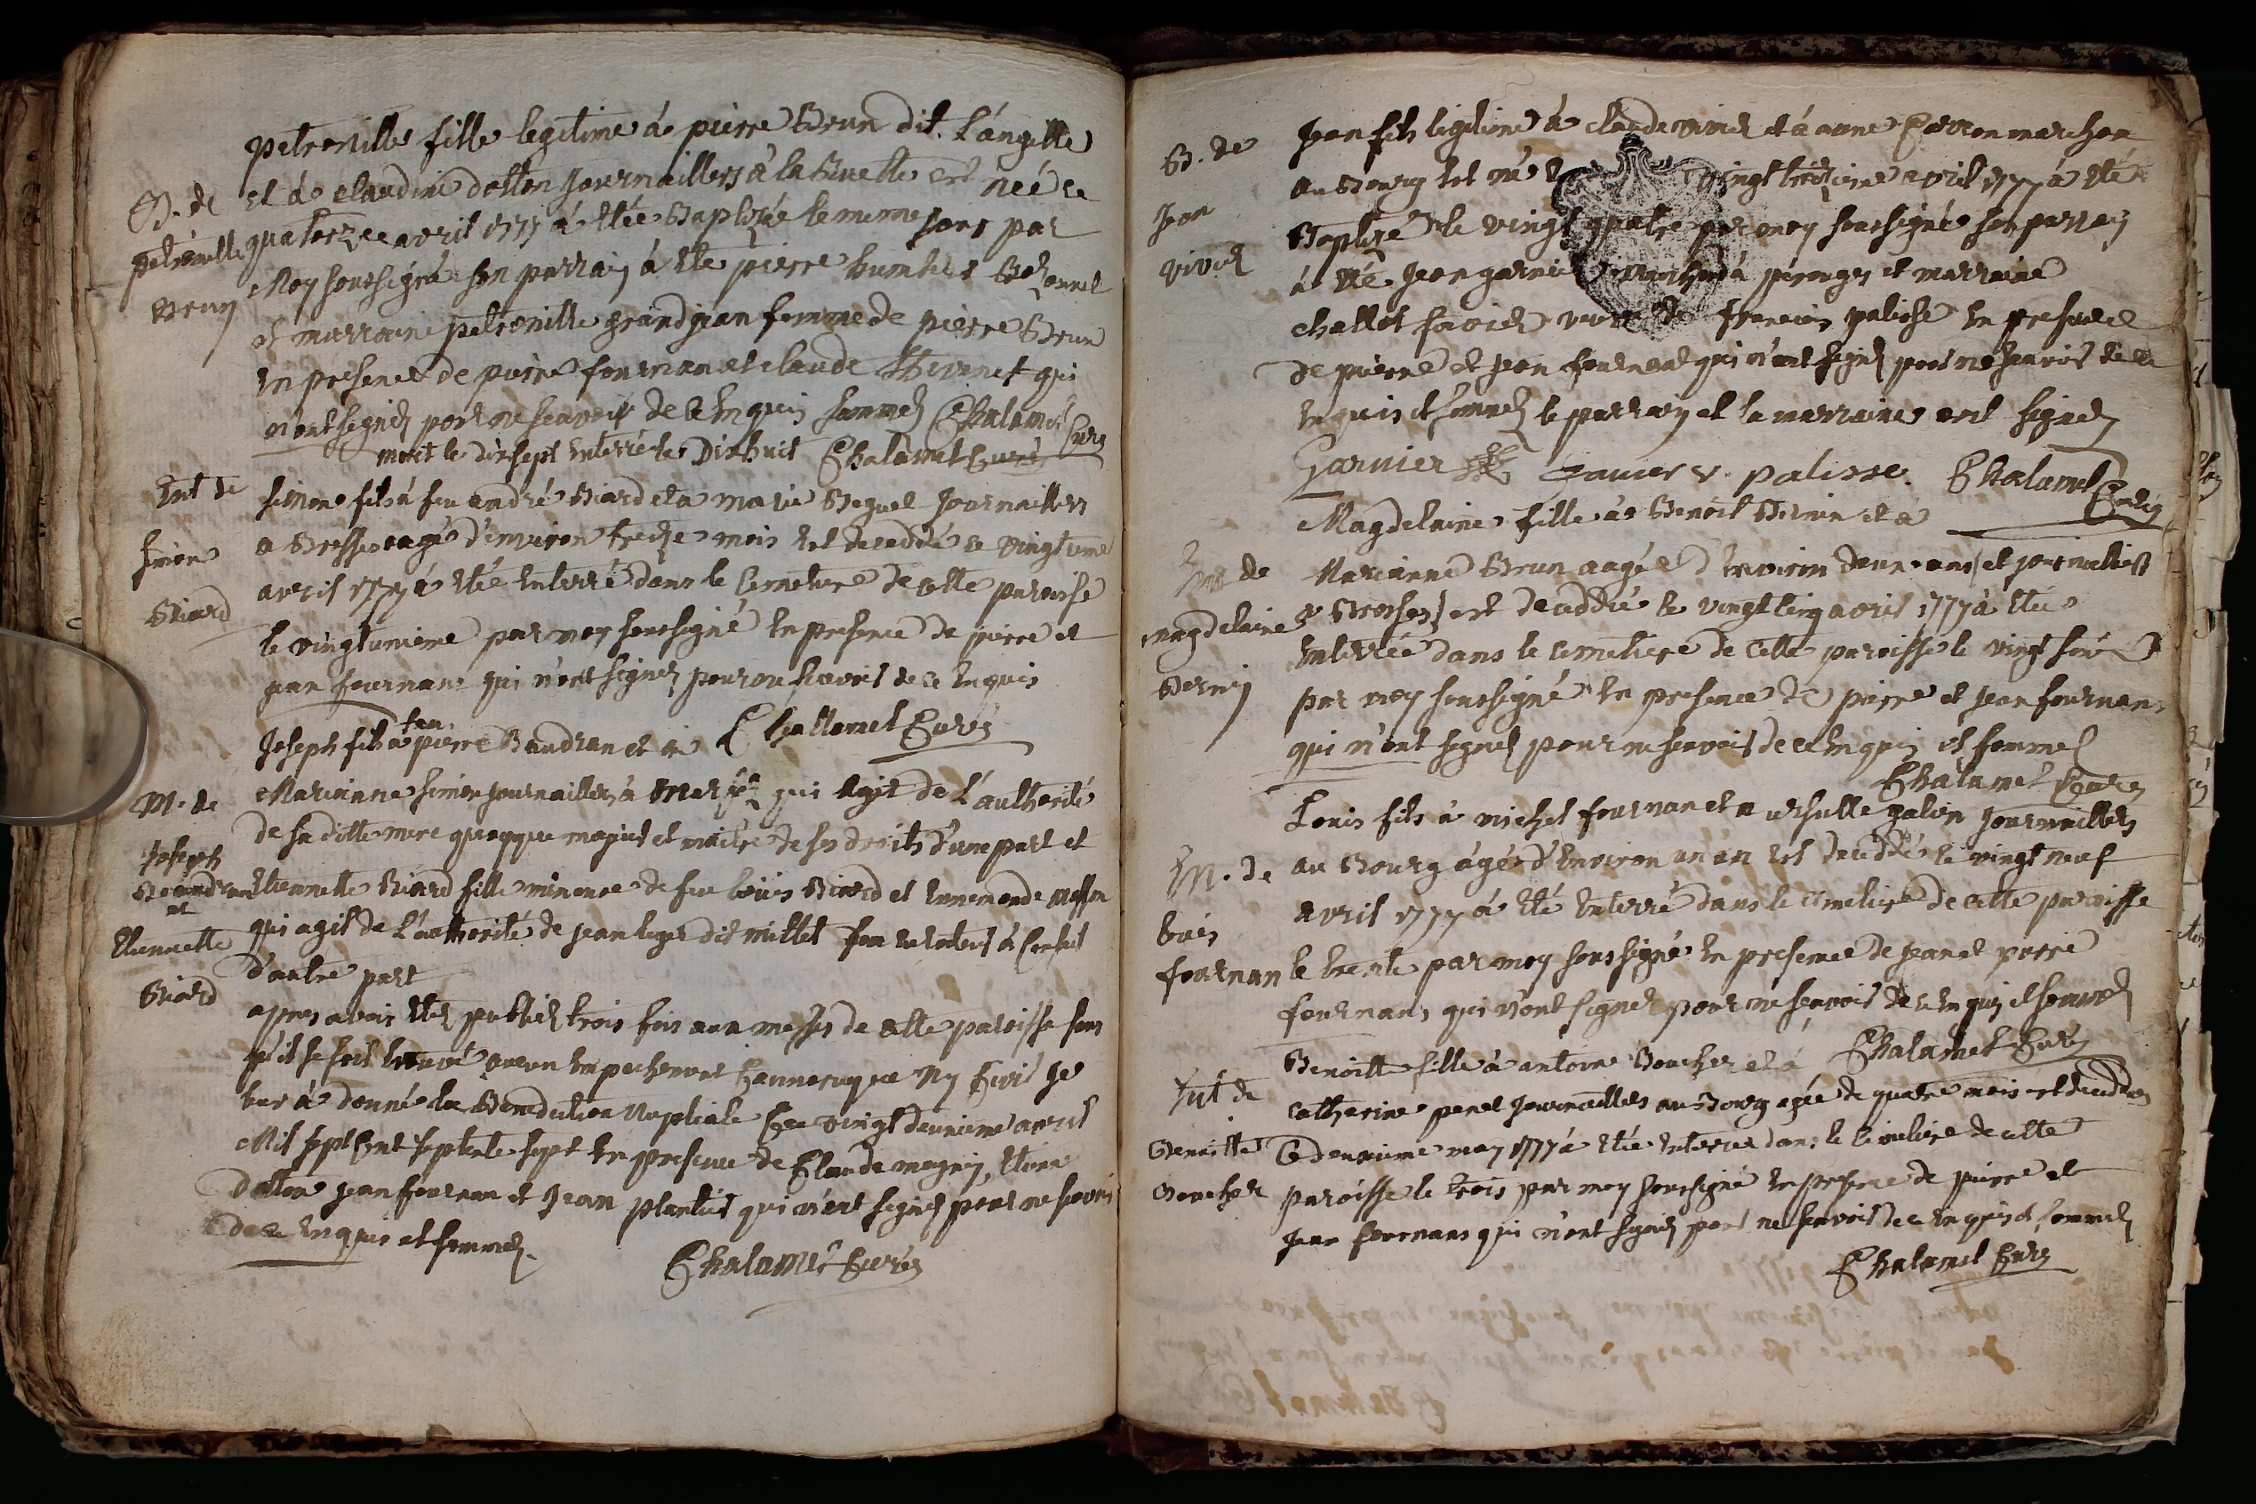 petronille fille legitime à pierre Brun dit L'angille
et à claudine dotton journailliers à la Buelle est neé ce
B. de
petronille
Brun
quatorze avril 1777 à étée Baptizée le meme jour par
Moy soussigné son parrain à été pierre humbert
et marraine petronille grandjean femme de pierre Brun
en presence de pierre fournan et claude Thevenet qui
n'ont signez pour ne scavoir de ce enquis sommez Chalamel Curé
mort le dixsept enterré le Dixhuit Chalamel Curé
Ent de
simon
Biard
simon fils à feu andré Biard et à marie Beguet journailliers
a Brosses agé d'environ treize mois est deceddé ce vingtieme
avril 1777 à étée enterré dans le cemetiere de cette paroisse
le vingtunieme par moy soussigné en presence de pierre et
jean fournans qui n'ont signez pour ne scavoir de ce enquis
Chalamel Curé
M. de
Joseph
Baudran
et
etiennette
Biard
Joseph fils à feu pierre Baudran et à
Marianne simon journailliers à qui agit de L'authorité
de sa ditte mere quoyque majeur et maitre de ses droits d'une part et
etiennette Biard fille mineure de feu loüis Biard et ennemonde
qui agit de L'authorité de jean leger dit millet son
d'autre part
apres avoir étéz publiez trois fois aux messes de cette paroisse sans
qu'il se soit trouvé aucun empechement Cannonique Ny Civil je
leur à donné la Benediction Nuptiale Ce vingt deuxieme avril
Mil sept Cent septente sept en presence de Claude magnin, etienne
dotton jean fournan et jean plantier qui n'ont signez pour ne scavoir
de ce enquis et sommez.
Chalamel Curé
B. de
Jean
vivier
Jean fils legitime à claude vivier et à anne Carron marchan
au Bourg est né le vingt troizieme avril 1777 à été
Baptizé le vingt quatre par moy soussigné son parrain
à été jean garnier marchand à perouges et marraine
veuve de francois palisse en presence
de pierre et jean fournan qui n'ont signez pour ne scavoir de ce
enquis et sommez le parrain et la marraine ont signez
Garnier v. palisse. Chalamel Curé
Ent de
magdelaine
Bernin
Magdelaine fille à Benoit Bernin et à
Marianne Brun aagée d'environ deux ans et journailliers
à Brosses est deceddée le vingt cinq avril 1777 à étée
enterrée dans le cemetiere de cette paroisse le vingt six
par moy soussigné en presence de pierre et jean fournans
qui n'ont signez pour ne scavoir de ce enquis et sommez
Chalamel Curé
M. de
loüis
fournan
Louis fils à michel fournan et à ursulle galien journailliers
au Bourg âgé d'environ un an est deceddé le vingt neuf
avril 1777 à été enterré dans le cimetiere de cette paroisse
le trente par moy soussigné en presence de jean et pierre
fournans qui n'ont signez pour ne scavoir de ce enquis et sommez
Chalamel Curé
Ent de
Benoitte
Boucher
Benoitte fille à antoine Boucher et à
catherine penet journailliers au Bourg agée de quatre mois est deceddée
Ce deuxieme may 1777 à étée enterrée dans le cimetiere de cette
paroisse le trois par moy soussigné en presence de pierre et
jean fournans qui n'ont signez pour ne scavoir de ce enquis et sommez
Chalamel Curé